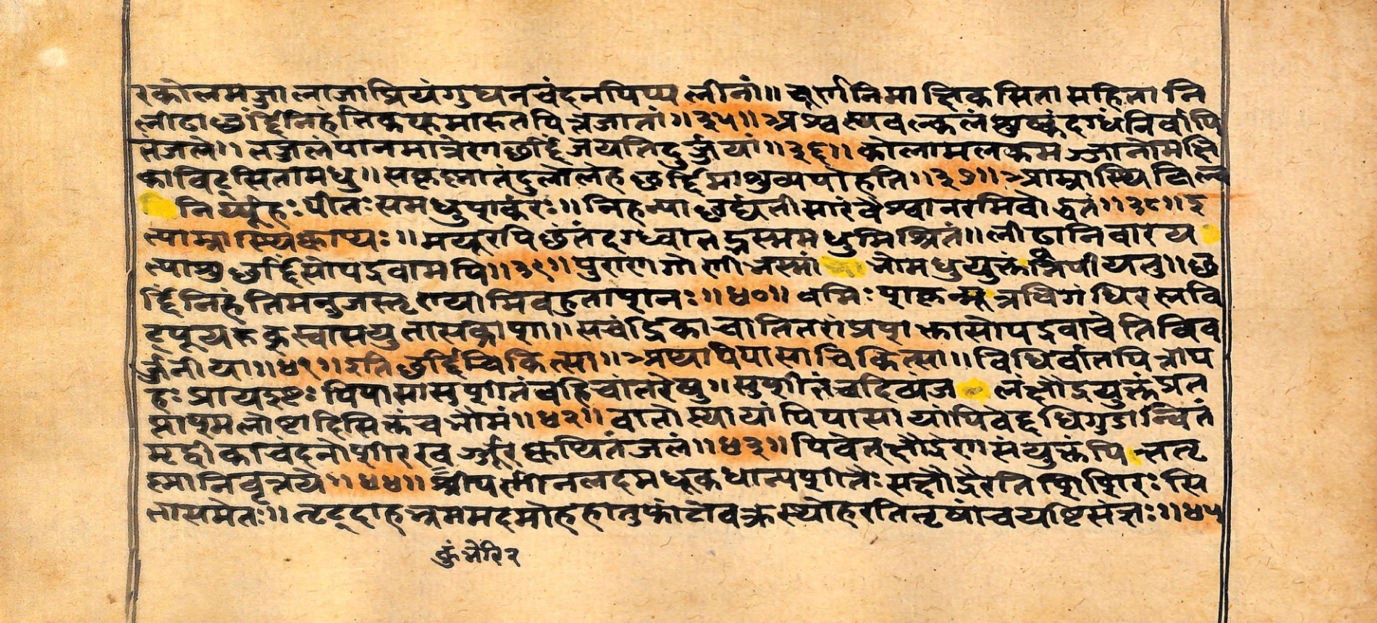 रकोलमज्जालाजाप्रियंगुघनचंदनपिप्पलीनां॥ चूर्णानिमाक्षिकसितासहितानि
लीढाछर्दिंनिहंतिकफमारुतपित्तजातां॥३५॥अश्वत्थवल्कलंशुष्कंदग्धंनिर्वापि
तंजले॥तज्जलंपानमात्रेणछर्दिंजयतिदुर्जयां॥३६॥कोलामलकमज्जानौमक्षि
काविट्सितामधु॥सकृष्णातंदुलोलेहछर्दिमाशुव्यपोहति॥३७॥आम्रास्थिबिल्व
निर्यूहःपीतःसमधुशर्करः॥निहन्याछर्द्यतीसारंवैश्वानरमिवाहुतं॥३८॥इ
त्याम्रास्थिक्वाथः॥मयूरपिछंतंदग्ध्वातद्भस्ममधुमिश्रितं॥लीढानिवारय
त्याशुछर्दिंसोपद्रवामपि॥३९॥पुराणगोणीभस्मांभोमधुयुक्तंनिपीयतु॥छ
र्दिंनिहतिमनुजस्तृणयामिवहुताशनः॥४०॥वमिःशकृन्मूत्रविगंधिरस्रवि
ट्पूययुक्श्वासयुतासकाशा॥सचंद्रिकाचातितरांप्रशक्तासोपद्रवाचेतिविव
र्जनीया॥४१॥इतिछर्दिचिकित्सा॥अथपिपासाचिकित्सा॥विधिर्वातपित्ताप
हःप्रायइष्टःपिपासासुशीतंबहिचांतरेषु॥सुशीतंचदिव्यजलंक्षौद्रयुक्तंप्रत
प्ताश्मलोष्टादिसिक्तंचभौमं॥४२॥वातोस्थायांपिपासायांपिवेद्दधिगुडान्वितं
मृद्वीकाचंदनोशीरखर्जूरक्वथितंजलं॥४३॥पिवेत्क्षौद्रेणसंयुक्तंपित्ततृ
ष्णानिवृत्तये॥४४॥श्रीपर्णीनलदमधूकधान्यशीतैःसक्षौद्रैरतिशिशिरःसि
तासमेतः॥तृट्दाहभ्रममदमोहहातुफांटोवक्रस्थोहरतितृषांचयष्टिसंज्ञः॥४५
कुंभेरि२